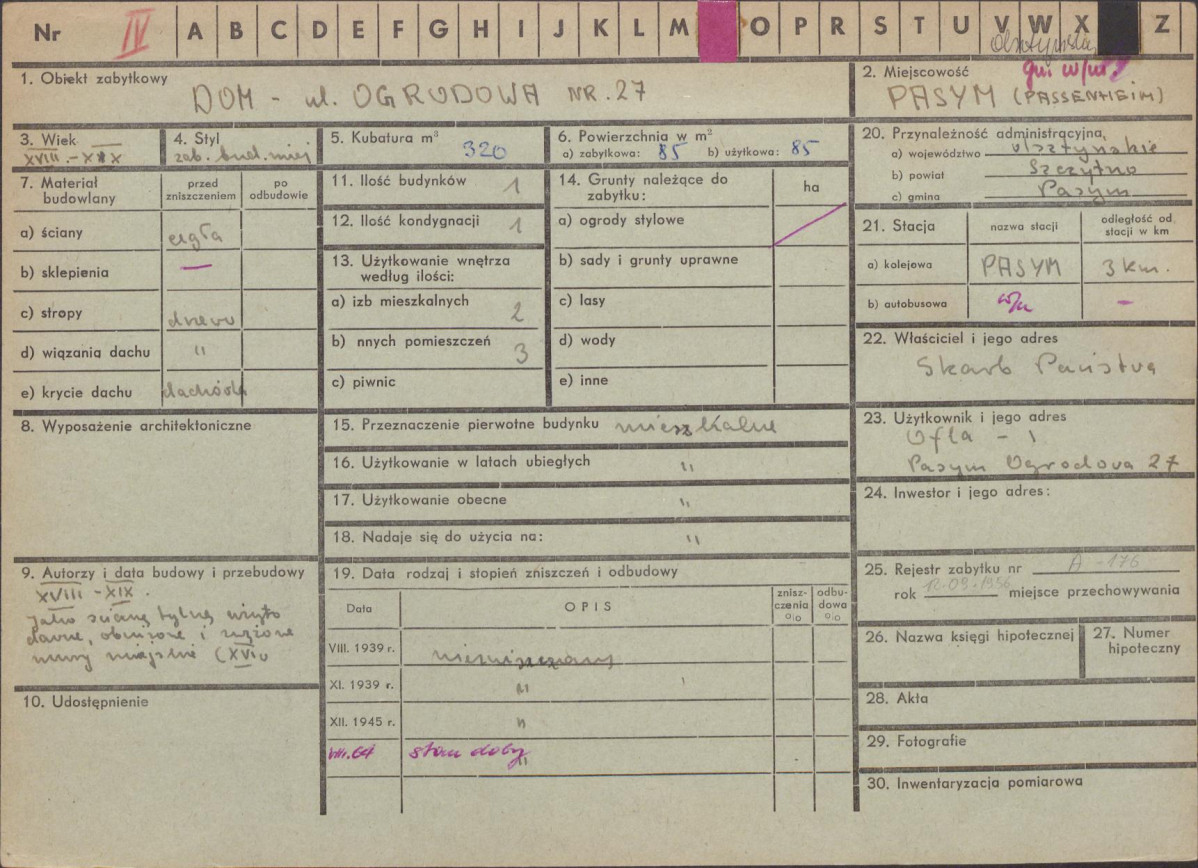 Nr IV A B C D E F G H I J K L M O P R S T U V W X Z
1. Obiekt zabytkowy
DOM - ul. OGRODOWA NR. 27
2. Miejscowość
PASYM (PASSENHEIM)
3. Wiek
XVIII.-XIX
4. Styl
zab. bud. miej
5. Kubatura m³
320
6. Powierzchnia w m²
a) zabytkowa: 85 b) użytkowa: 85
7. Materiał budowlany
przed zniszczeniem
po odbudowie
a) ściany cegła
b) sklepienia —
c) stropy drzewo
d) wiązania dachu "
e) krycie dachu dachówka
8. Wyposażenie architektoniczne
9. Autorzy i data budowy i przebudowy
XVIII-XIX.
jako ścianę tylną użyto
dawne, obniżone i
mury miejskie (XVI
10. Udostępnienie
11. Ilość budynków 1
12. Ilość kondygnacji 1
13. Użytkowanie wnętrza
według ilości:
a) izb mieszkalnych 2
b) nnych pomieszczeń 3
c) piwnic
14. Grunty należące do
zabytku:
ha
a) ogrody stylowe
b) sady i grunty uprawne
c) lasy
d) wody
e) inne
15. Przeznaczenie pierwotne budynku mieszkalne
16. Użytkowanie w latach ubiegłych "
17. Użytkowanie obecne "
18. Nadaje się do użycia na: "
19. Data rodzaj i stopień zniszczeń i odbudowy
Data OPIS znisz-czenia % odbu-dowa %
VIII. 1939 r. niezniszczony
XI. 1939 r. "
XII. 1945 r. "
VIII.64 stan dobry
"
20. Przynależność administracyjna,
a) województwo olsztyńskie
b) powiat Szczytno
c) gmina Pasym
21. Stacja nazwa stacji odległość od stacji w km
a) kolejowa PASYM 3 km.
b) autobusowa w/m –
22. Właściciel i jego adres
Skarb Państwa
23. Użytkownik i jego adres
Ofla - 1
Pasym Ogrodowa 27
24. Inwestor i jego adres:
25. Rejestr zabytku nr A-176
rok 12.09.1956 miejsce przechowywania
26. Nazwa księgi hipotecznej
27. Numer
hipoteczny
28. Akta
29. Fotografie
30. Inwentaryzacja pomiarowa